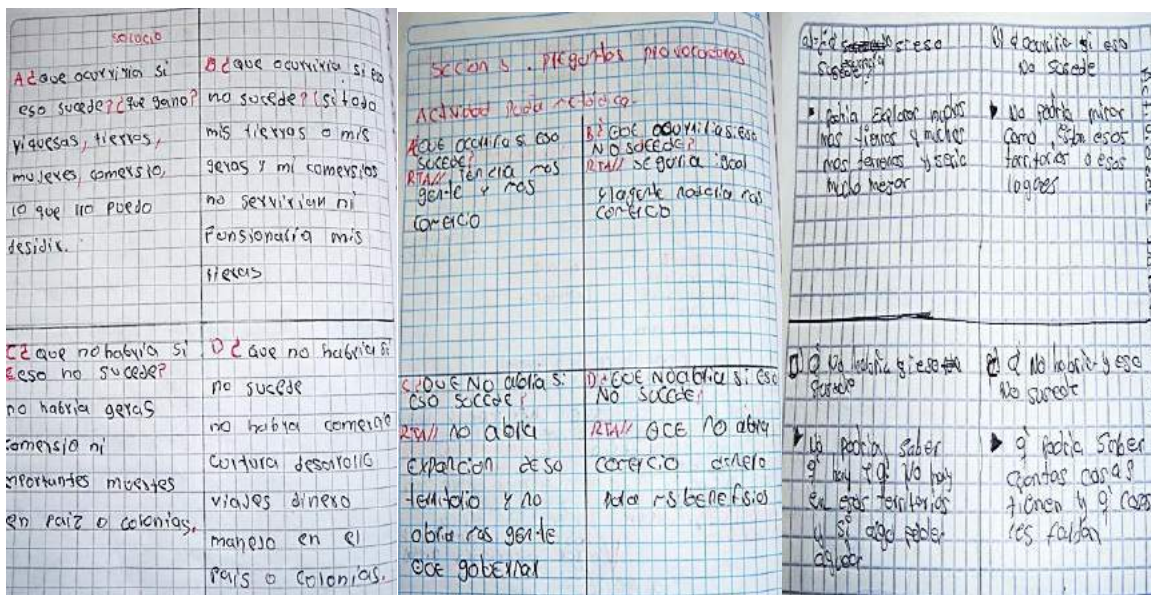 solucio
A ¿ que ocurriria si
eso sucede? ¿que gano?
riquesas, tierras,
mujeres, comersio,
lo que no puedo
desidir.
B ¿ que ocurriria si eso
no sucede? (si todo
mis tierras o mis
geras y mi comersios
no servirian ni
funsionaria mis
tieras
C ¿ que no habria si
eso no sucede?
no habria geras
comersio ni
inportantes muertes
en paiz o colonias.
D ¿ que no habria si
no sucede
no habra comercio
cultura desarollo
viajes dinero
manejo en el
pais o colonias.
seccon 5 . preguntas provocadoras
Actividad
A¿QUE occurira si eso
succede?
RTA// tencia mas
gente y mas
comercio
B¿ QUE ocurrira si eso
NO succede?
RTA// seguria igual
y la gente no daria mas
comercio
C¿QUE NO abria si
eso succede?
RTA// no abria
expancion de so
territorio y no
abria mas gente
QUE gobernar
D¿QUE NO abria si eso
NO succede?
RTA// QUE no abria
comercio dinero
para mis benefisios
si eso
susede?
podria Explorar muchos
mas tierras y muchos
mas terrenos y seria
mucho mejor
ocurriria si eso
No susede
No podria mirar
como están esos
territorios o esos
lugares
No habria si eso
susede
No podria saber
q' hay y q' No hay
en esos territorios
y si algo poder
ayudar
No habria y eso
No susede
q' podria saber
cuantas casas
tienen y q' casas
les faltan